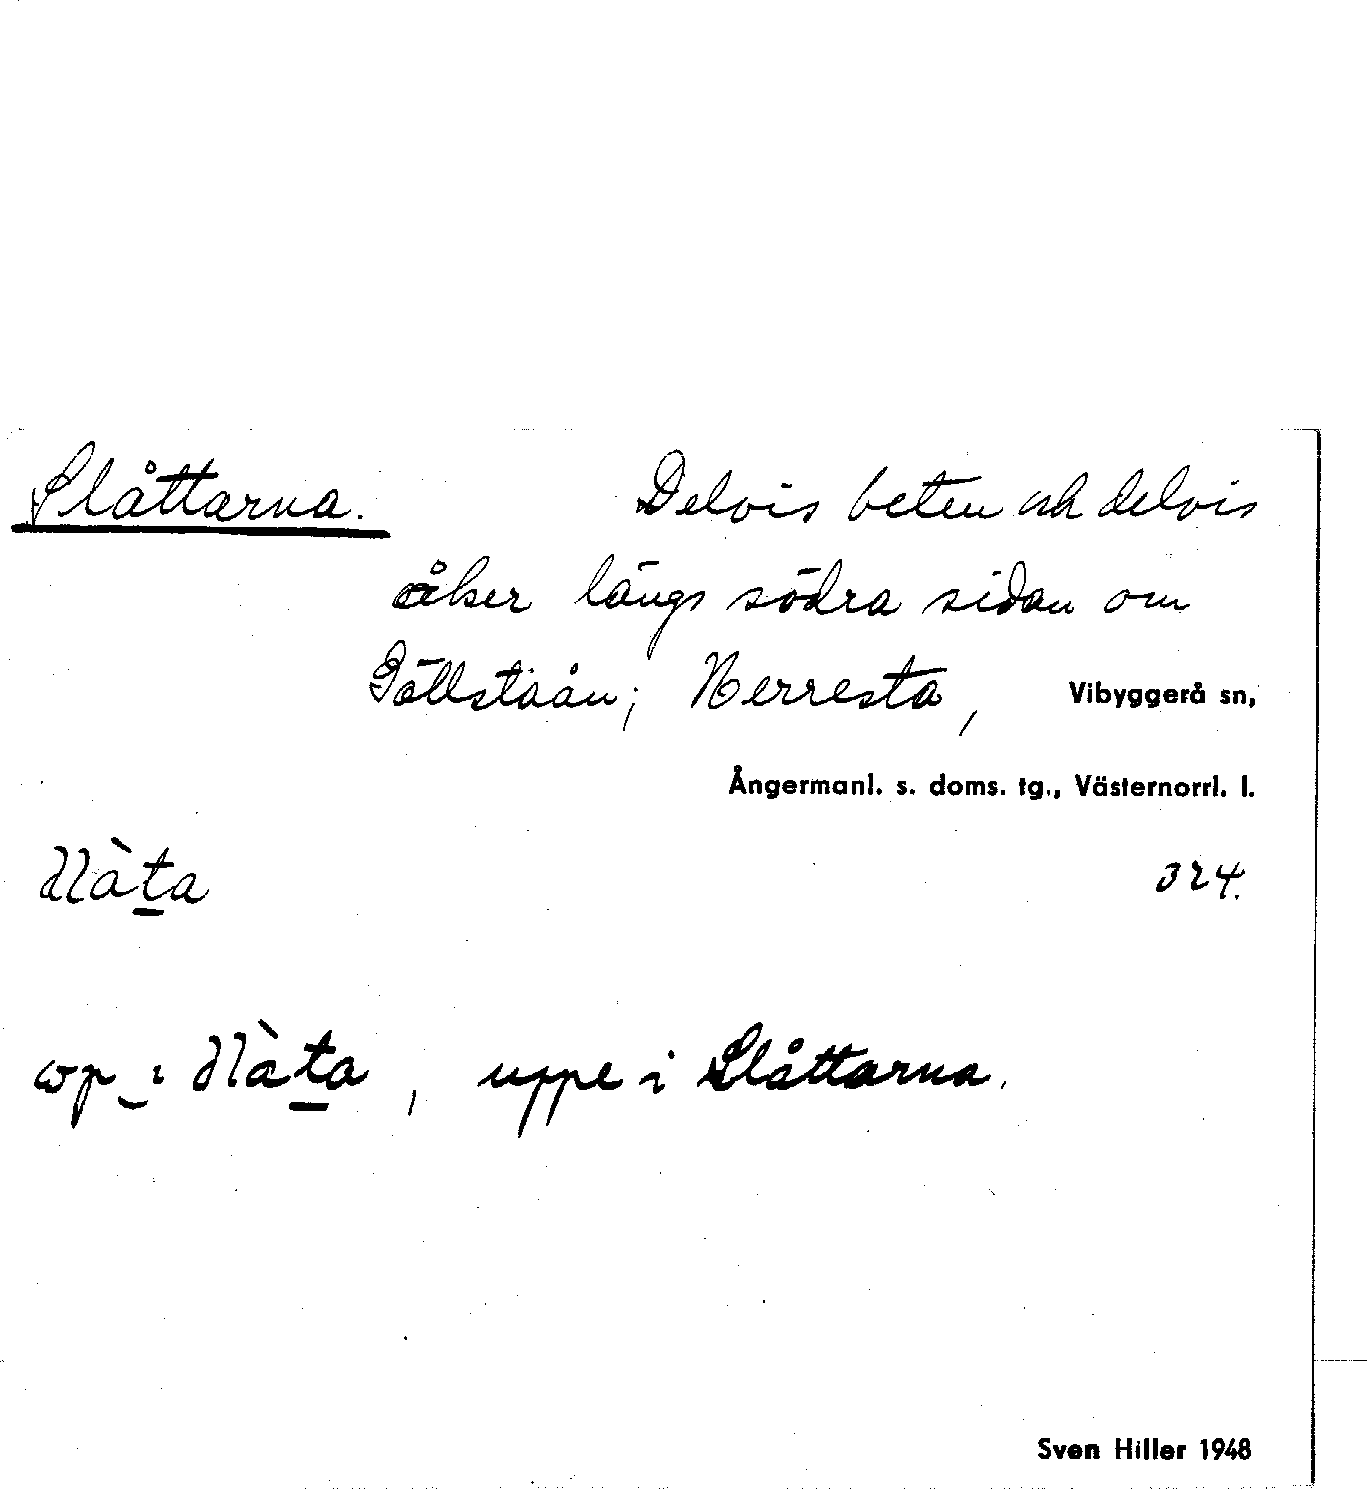 Slåttarna. Delvis beten och delvis
åker längs södra sidan om
Gällstaån; Norresta, Vibyggerå sn,
Ångermanl. s. doms. tg., Västernorrl. l.
324.
, uppe i Slåttarna.
Sven Hiller 1948